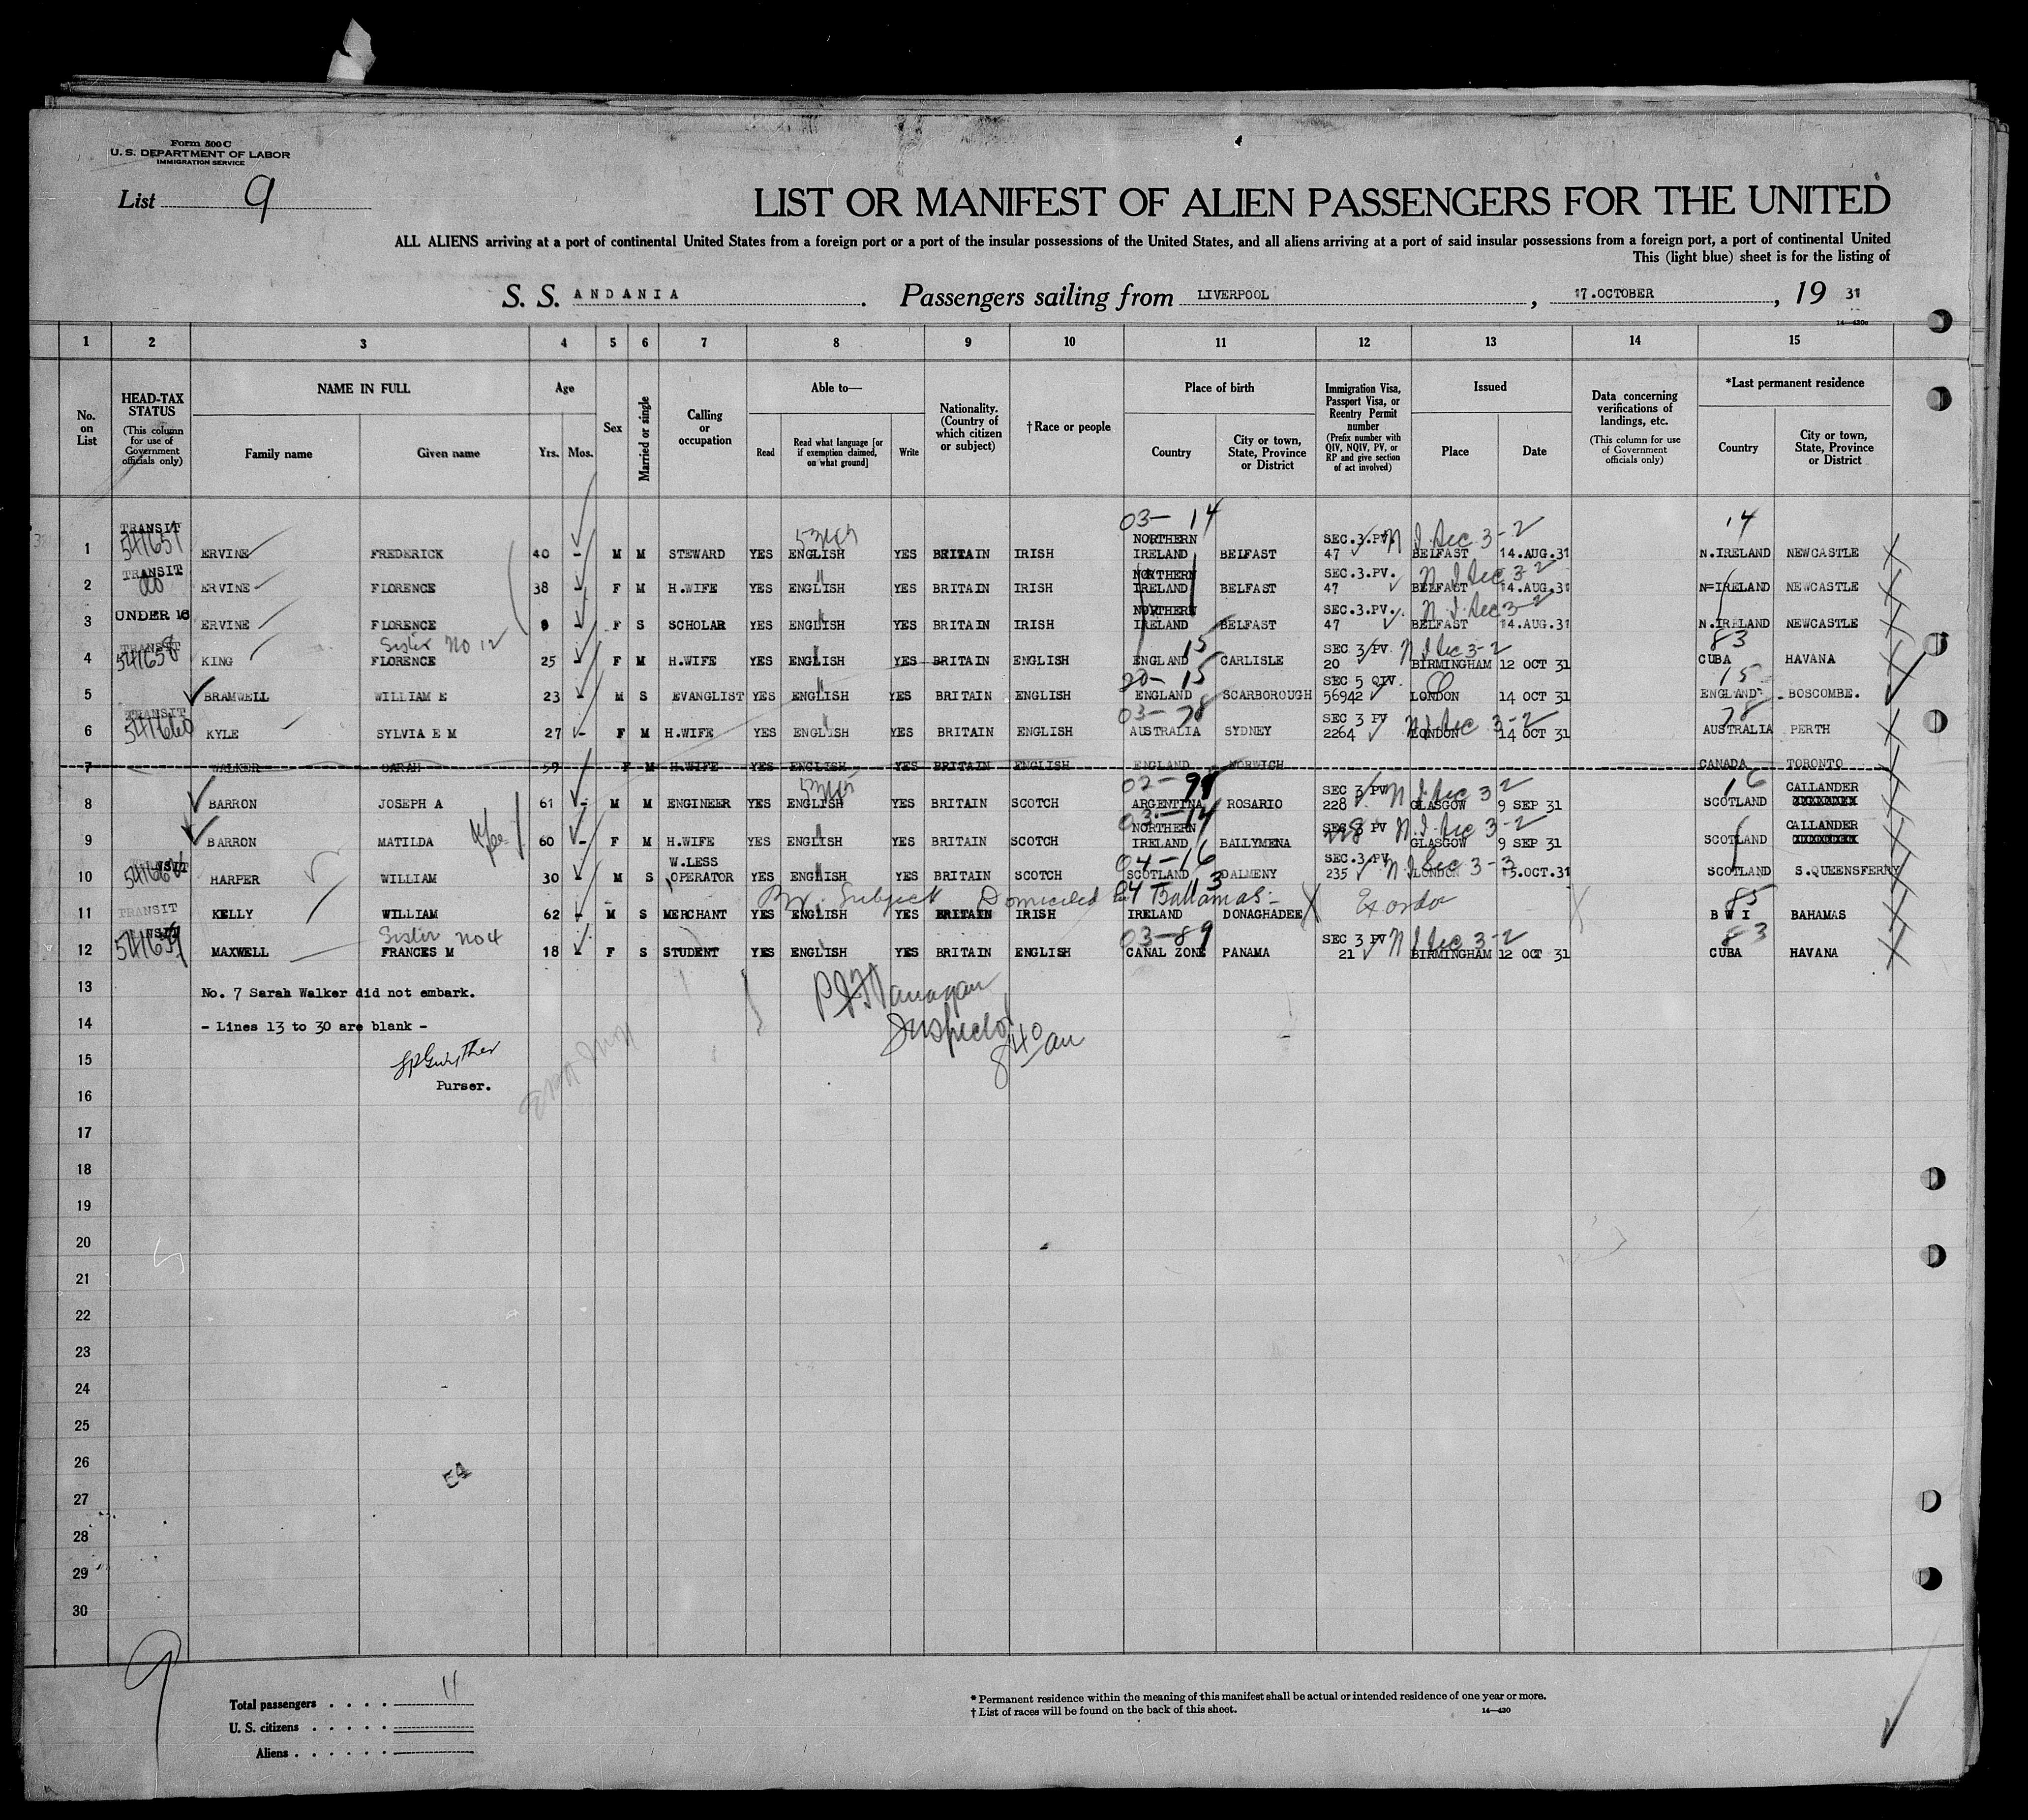 Form 500 C
U. S. DEPARTMENT OF LABOR
IMMIGRATION SERVICE
List 9
LIST OR MANIFEST OF ALIEN PASSENGERS FOR THE UNITED
ALL ALIENS arriving at a port of continental United States from a foreign port or a port of the insular possessions of the United States, and all aliens arriving at a port of said insular possessions from a foreign port, a port of continental United
This (light blue) sheet is for the listing of
S. S. ANDANIA . Passengers sailing from LIVERPOOL , 17.OCTOBER , 19 31
14—430a
1 2 3 4 5 6 7 8 9 10 11 12 13 14 15
No. on List
HEAD-TAX STATUS (This column for use of Government officials only)
NAME IN FULL
Family name Given name
Age
Yrs. Mos.
Sex
Married or single
Calling or occupation
Able to—
Read Read what language [or if exemption claimed, on what ground] Write
Nationality. (Country of which citizen or subject)
†Race or people
Place of birth
Country City or town, State, Province or District
Immigration Visa, Passport Visa, or Reentry Permit number (Prefix number with QIV, NQIV, PV, or RP and give section of act involved)
Issued
Place Date
Data concerning verifications of landings, etc. (This column for use of Government officials only)
*Last permanent residence
Country City or town, State, Province or District
03- 14 14
1 TRANSIT 541657 ERVINE FREDERICK 40 - M M STEWARD YES ENGLISH YES BRITAIN IRISH NORTHERN IRELAND BELFAST SEC.3.PV. 47 N I Sec 3-2 BELFAST 14.AUG.31 N.IRELAND NEWCASTLE
2 TRANSIT ERVINE FLORENCE 38 - F M H.WIFE YES ENGLISH " YES BRITAIN IRISH NORTHERN IRELAND BELFAST SEC.3.PV. 47 N I Sec 3-2 BELFAST 14.AUG.31 N=IRELAND NEWCASTLE
3 UNDER 16 ERVINE FLORENCE 9 - F S SCHOLAR YES ENGLISH " YES BRITAIN IRISH NORTHERN IRELAND BELFAST SEC.3.PV. 47 N.I. Sec 3-2 BELFAST 14.AUG.31 N.IRELAND NEWCASTLE
Sister No 12 15 83
4 TRANSIT 541658 KING FLORENCE 25 - F M H.WIFE YES ENGLISH YES BRITAIN ENGLISH ENGLAND CARLISLE SEC 3 PV 20 N I Sec 3-2 BIRMINGHAM 12 OCT 31 CUBA HAVANA
20- 15 15
5 BRAMWELL WILLIAM E 23 - M S EVANGLIST YES ENGLISH " YES BRITAIN ENGLISH ENGLAND SCARBOROUGH SEC 5 QIV 56942 LONDON 14 OCT 31 ENGLAND BOSCOMBE.
03- 78 78
6 TRANSIT 541660 KYLE SYLVIA E M 27 - F M H.WIFE YES ENGLISH " YES BRITAIN ENGLISH AUSTRALIA SYDNEY SEC 3 PV 2264 N I Sec 3-2 LONDON 14 OCT 31 AUSTRALIA PERTH
7 WALKER SARAH 59 F M H.WIFE YES ENGLISH YES BRITAIN ENGLISH ENGLAND NORWICH CANADA TORONTO
02- 16
8 BARRON JOSEPH A 61 - M M ENGINEER YES ENGLISH YES BRITAIN SCOTCH ARGENTINA ROSARIO SEC 3 PV 228 N I Sec 3 2 GLASGOW 9 SEP 31 SCOTLAND CALLANDER
03- 14
9 BARRON MATILDA 60 - F M H.WIFE YES ENGLISH " YES BRITAIN SCOTCH NORTHERN IRELAND BALLYMENA SEC 3 PV 228 N.I. Sec 3-2 GLASGOW 9 SEP 31 SCOTLAND CALLANDER
04-16
10 TRANSIT HARPER WILLIAM 30 - M S W.LESS OPERATOR YES ENGLISH YES BRITAIN SCOTCH SCOTLAND DALMENY SEC.3.PV 235 N I Sec 3-3 LONDON 15.OCT.31 SCOTLAND S.QUEENSFERRY
Br. Subject Domiciled Bahamas- 85
11 TRANSIT KELLY WILLIAM 62 - M S MERCHANT YES ENGLISH YES BRITAIN IRISH IRELAND DONAGHADEE B W I BAHAMAS
Sister No 4 03-89 83
12 TRANSIT 541659 MAXWELL FRANCES M 18 - F S STUDENT YES ENGLISH YES BRITAIN ENGLISH CANAL ZONE PANAMA SEC 3 PV 21 N I Sec 3-2 BIRMINGHAM 12 OCT 31 CUBA HAVANA
13 No. 7 Sarah Walker did not embark.
P J Flanagan
Inspector
14 - Lines 13 to 30 are blank -
8 40 am
15
Purser.
16
17
18
19
20
21
22
23
24
25
26
27
28
29
30
9
Total passengers . . . . 11
U. S. citizens . . . . .
Aliens . . . . . .
* Permanent residence within the meaning of this manifest shall be actual or intended residence of one year or more.
† List of races will be found on the back of this sheet.
14—430